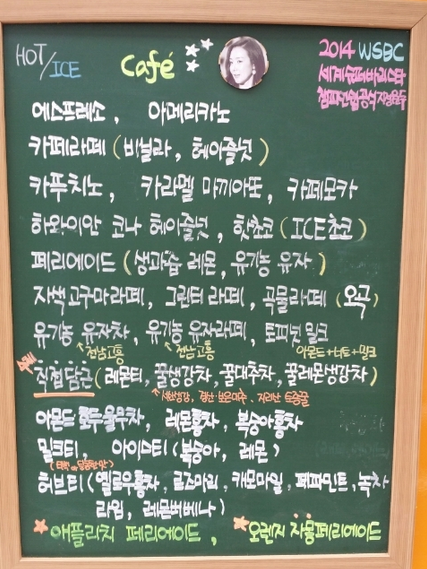 HOT/ICE Café 2014 WSBC
세계슈퍼바리스타
챔피언쉽공식지정원두
에스프레소, 아메리카노
카페라떼 (바닐라, 헤이즐넛)
카푸치노, 카라멜 마끼아또, 카페모카
하와이안 코나 헤이즐넛, 핫초코 (ICE초코)
페리에이드 (생과즙 레몬, 유기농 유자)
자색고구마라떼, 그린티라떼, 곡물라떼 (오곡)
유기농 유자차, 유기농 유자라떼, 토피넛 밀크
전남고흥 전남고흥 아몬드+너트+밀크
직접담근 (레몬티, 꿀생강차, 꿀대추차, 꿀레몬생강차)
아몬드 호두율무차, 레몬홍차, 복숭아홍차
밀크티, 아이스티 (복숭아, 레몬)
허브티 (옐로우홍차, 로즈마리, 캐모마일, 페파민트, 녹차
라임, 레몬버베나)
애플라치 페리에이드, 오렌지 자몽페리에이드